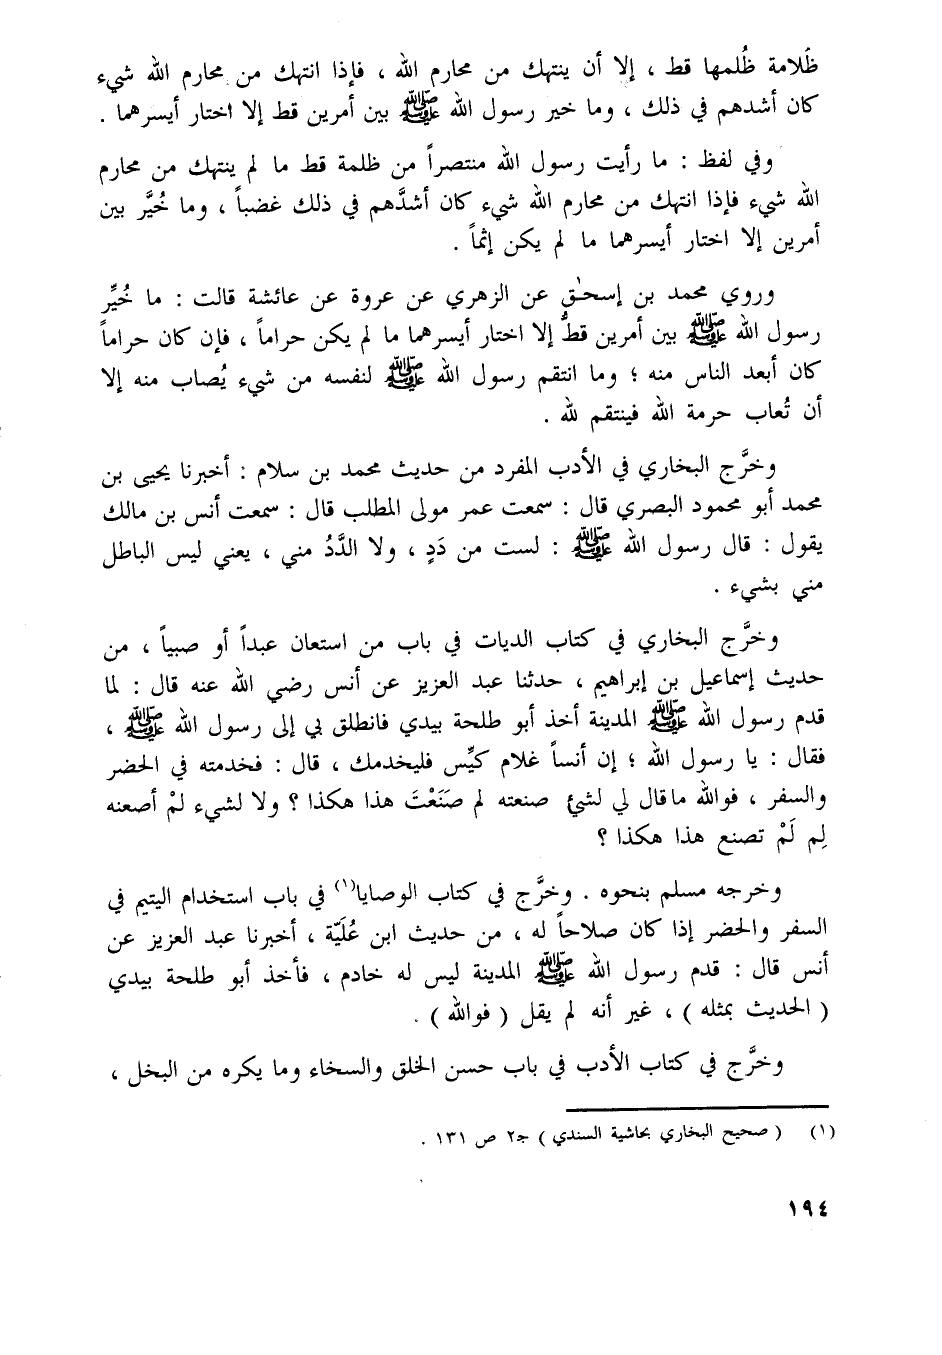 ظَلامة ظُلمها قط ، إلا أن ينتهك من محارم الله ، فإذا انتهك من محارم الله شيء
كان أشدهم في ذلك ، وما خير رسول الله ﷺ بين أمرين قط إلا اختار أيسرهما .
وفي لفظ : ما رأيت رسول الله منتصراً من ظلمة قط ما لم ينتهك من محارم
الله شيء فإذا انتهك من محارم الله شيء كان أشدَّهم في ذلك غضباً ، وما خُيَّر بين
أمرين إلا اختار أيسرهما ما لم يكن إثماً .
وروي محمد بن إسحٰق عن الزهري عن عروة عن عائشة قالت : ما خُيِّر
رسول الله ﷺ بين أمرين قطُّ إلا اختار أيسرهما ما لم يكن حراماً ، فإن كان حراماً
كان أبعد الناس منه ؛ وما انتقم رسول الله ﷺ لنفسه من شيء يُصاب منه إلا
أن تُعاب حرمة الله فينتقم لله .
وخرَّج البخاري في الأدب المفرد من حديث محمد بن سلام : أخبرنا يحيى بن
محمد أبو محمود البصري قال : سمعت عمر مولى المطلب قال : سمعت أنس بن مالك
يقول : قال رسول الله ﷺ : لست من دَدٍ ، ولا الدَّدُ مني ، يعني ليس الباطل
مني بشيء .
وخرَّج البخاري في كتاب الديات في باب من استعان عبداً أو صبياً ، من
حديث إسماعيل بن إبراهيم ، حدثنا عبد العزيز عن أنس رضي الله عنه قال : لما
قدم رسول الله ﷺ المدينة أخذ أبو طلحة بيدي فانطلق بي إلى رسول الله ﷺ ،
فقال : يا رسول الله ؛ إن أنساً غلام كيِّس فليخدمك ، قال : فخدمته في الحضر
والسفر ، فوالله ماقال لي لشئ صنعته لم صَنَعْتَ هذا هكذا ؟ ولا لشيء لمْ أصنعه
لِم لَمْ تصنع هذا هكذا ؟
وخرجه مسلم بنحوه . وخرَّج في كتاب الوصايا(١) في باب استخدام اليتيم في
السفر والحضر إذا كان صلاحاً له ، من حديث ابن عُلَيّة ، أخبرنا عبد العزيز عن
أنس قال : قدم رسول الله ﷺ المدينة ليس له خادم ، فأخذ أبو طلحة بيدي
( الحديث بمثله ) ، غير أنه لم يقل ( فوالله ) .
وخرَّج في كتاب الأدب في باب حسن الخلق والسخاء وما يكره من البخل ،
(١) ( صحيح البخاري بحاشية السندي ) جـ٢ ص ١٣١ .
١٩٤